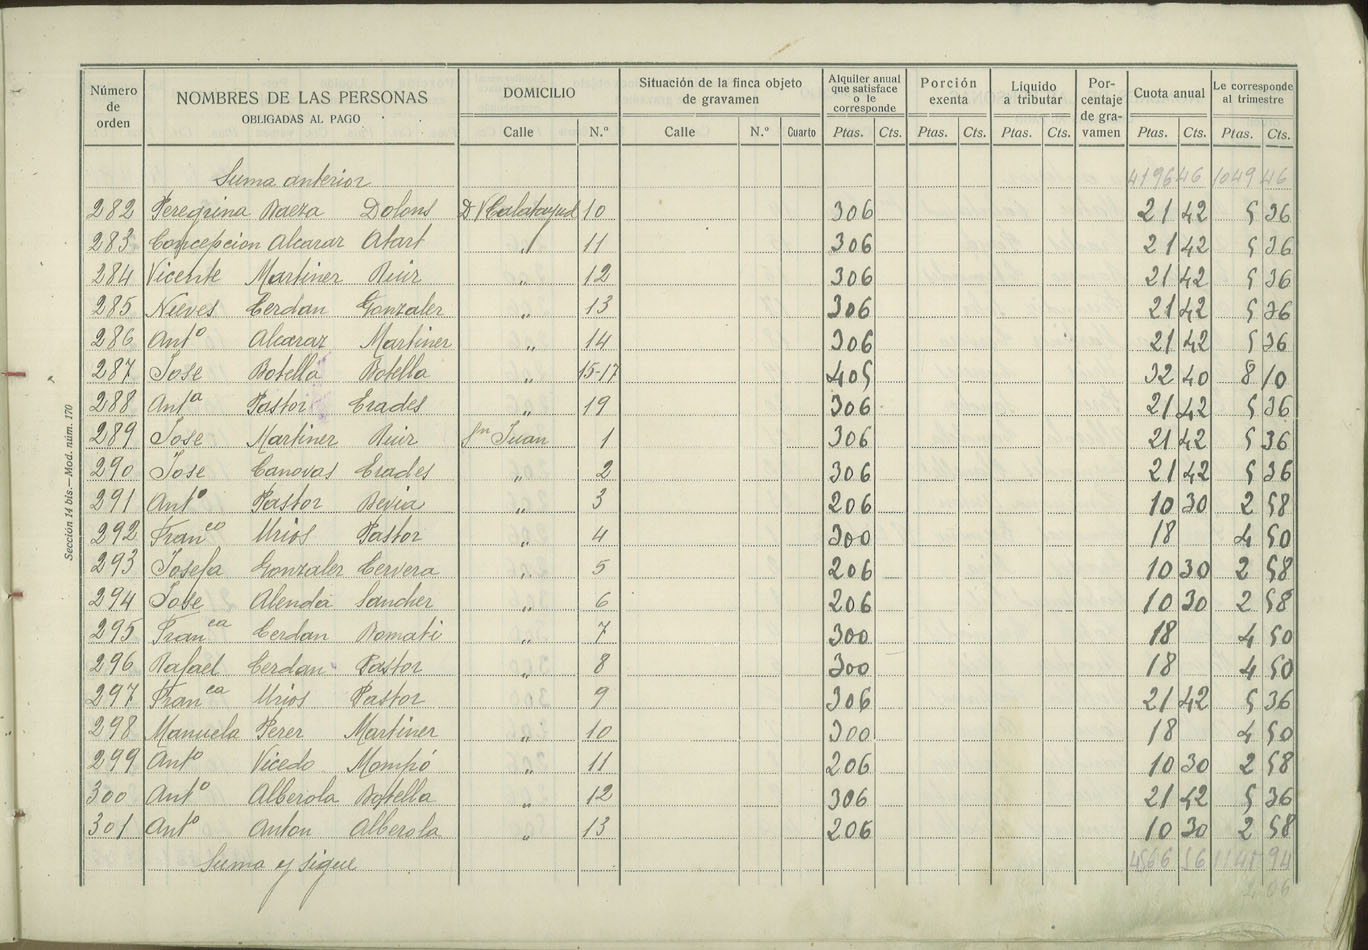 Número de orden | NOMBRES DE LAS PERSONAS OBLIGADAS AL PAGO | DOMICILIO Calle N.º | Situación de la finca objeto de gravamen Calle N.º Cuarto | Alquiler anual que satisface o le corresponde Ptas. Cts. | Porción exenta Ptas. Cts. | Líquido a tributar Ptas. Cts. | Porcentaje de gravamen | Cuota anual Ptas. Cts. | Le corresponde al trimestre Ptas. Cts.
Suma anterior 4196 46 1049 46
282 Peregrina Baeza Dolons D V Calatayud 10 306 21 42 5 36
283 Concepcion Alcaraz Atart " 11 306 21 42 5 36
284 Vicente Martinez Ruiz " 12 306 21 42 5 36
285 Nieves Cerdan Gonzalez " 13 306 21 42 5 36
286 Antº Alcaraz Martinez " 14 306 21 42 5 36
287 Jose Botella Botella " 15-17 405 32 40 8 10
288 Antª Pastor Erades " 19 306 21 42 5 36
289 Jose Martinez Ruiz Sn Juan 1 306 21 42 5 36
290 Jose Canovas Erades " 2 306 21 42 5 36
291 Antº Pastor Bevia " 3 206 10 30 2 58
292 Franco Urios Pastor " 4 300 18 4 50
293 Josefa Gonzalez Cervera " 5 206 10 30 2 58
294 Jose Alenda Sanchez " 6 206 10 30 2 58
295 Franca Cerdan Bomati " 7 300 18 4 50
296 Rafael Cerdan Pastor " 8 300 18 4 50
297 Franca Urios Pastor " 9 306 21 42 5 36
298 Manuela Perez Martinez " 10 300 18 4 50
299 Antº Vicedo Mompó " 11 206 10 30 2 58
300 Antº Alberola Botella " 12 306 21 42 5 36
301 Antº Anton Alberola " 13 206 10 30 2 58
Suma y sigue 56 94
Sección 14 bis.—Mod. núm. 170